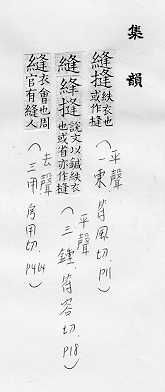 集韻
縫摓 紩衣也
或作摓
(平聲
一東 符風切. P11)
縫𦄚摓 說文以鍼紩衣
也或省亦作摓
(平聲
三鍾. 符容切. P18)
縫 衣會也周
官有縫人
(去聲
三用 房用切. P464)